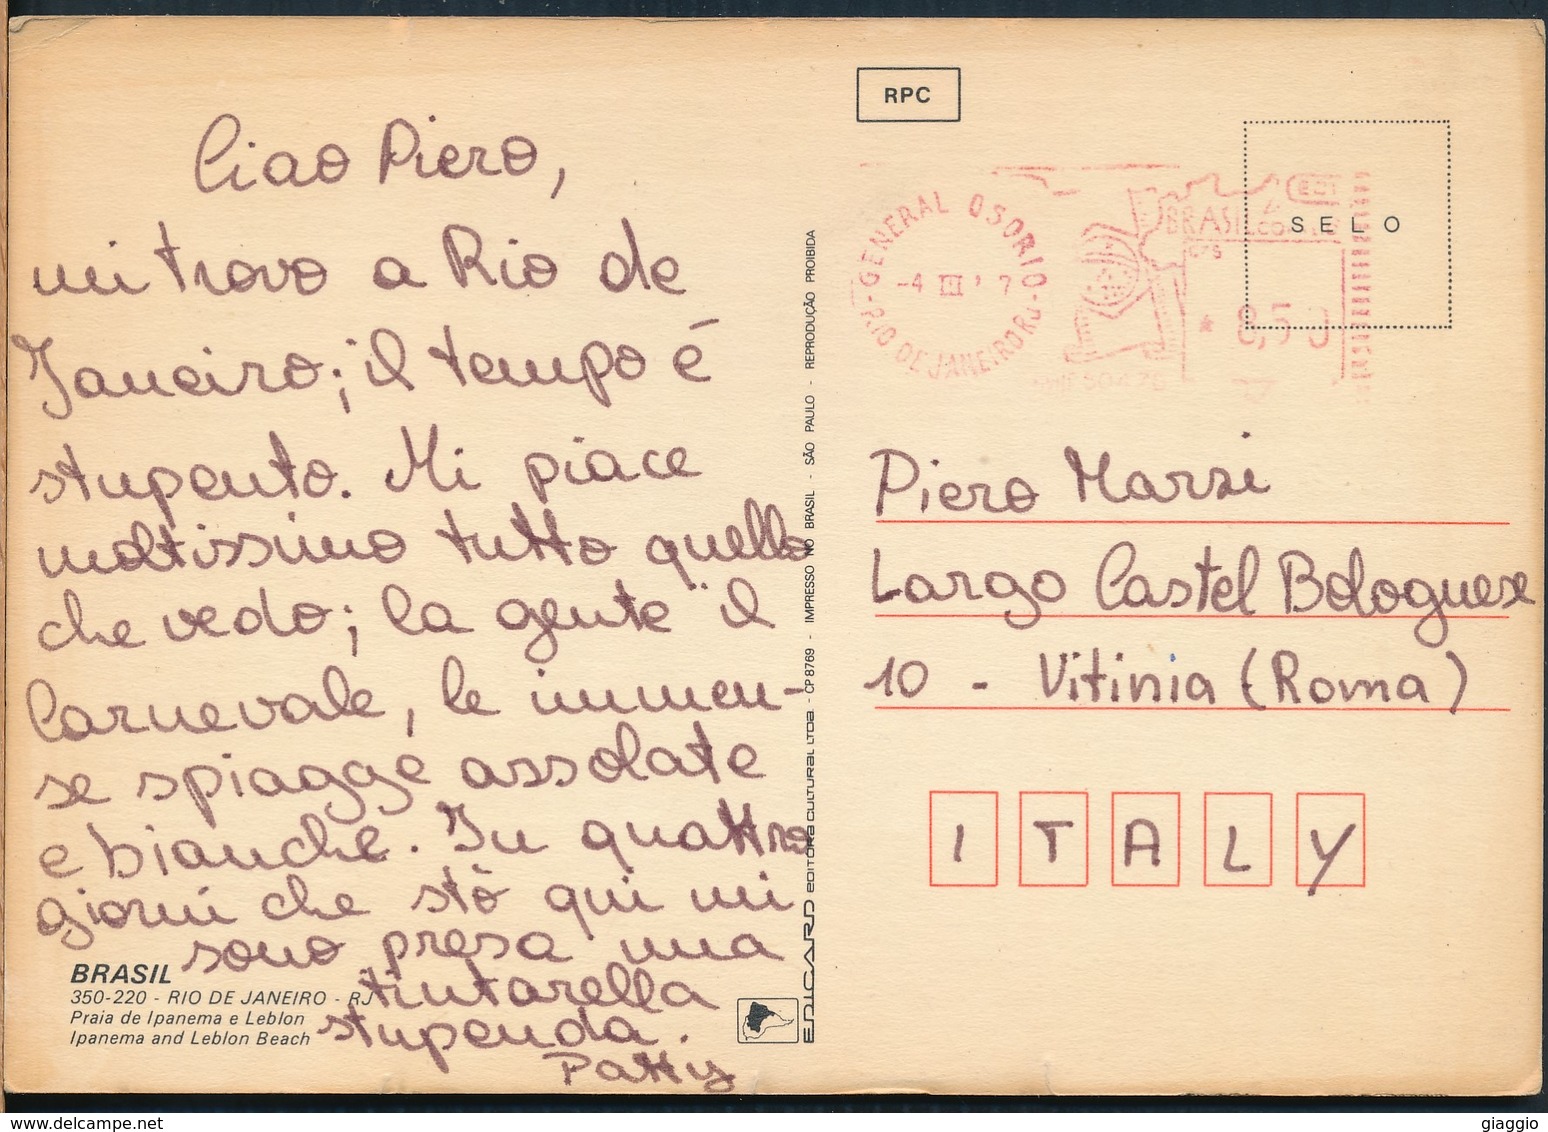 Ciao Piero,
mi trovo a Rio de
Janeiro; il tempo è
stupento. Mi piace
moltissimo tutto quello
che vedo; la gente il
Carnevale, le immen-
se spiagge assolate
e bianche. In quattro
giorni che stò qui mi
sono presa una
tintarella
stupenda.
Patty
BRASIL
350-220 - RIO DE JANEIRO - RJ
Praia de Ipanema e Leblon
Ipanema and Leblon Beach
EDICARD EDITORA CULTURAL LTDA. - CP 8769 - IMPRESSO NO BRASIL - SÃO PAULO - REPRODUÇÃO PROIBIDA
RPC
SELO
GENERAL OSORIO
-4 III '7
RIO DE JANEIRO RJ
BRASIL
8,50
Piero Marsi
Largo Castel Bolognese
10 - Vitinia (Roma)
ITALY
giaggio